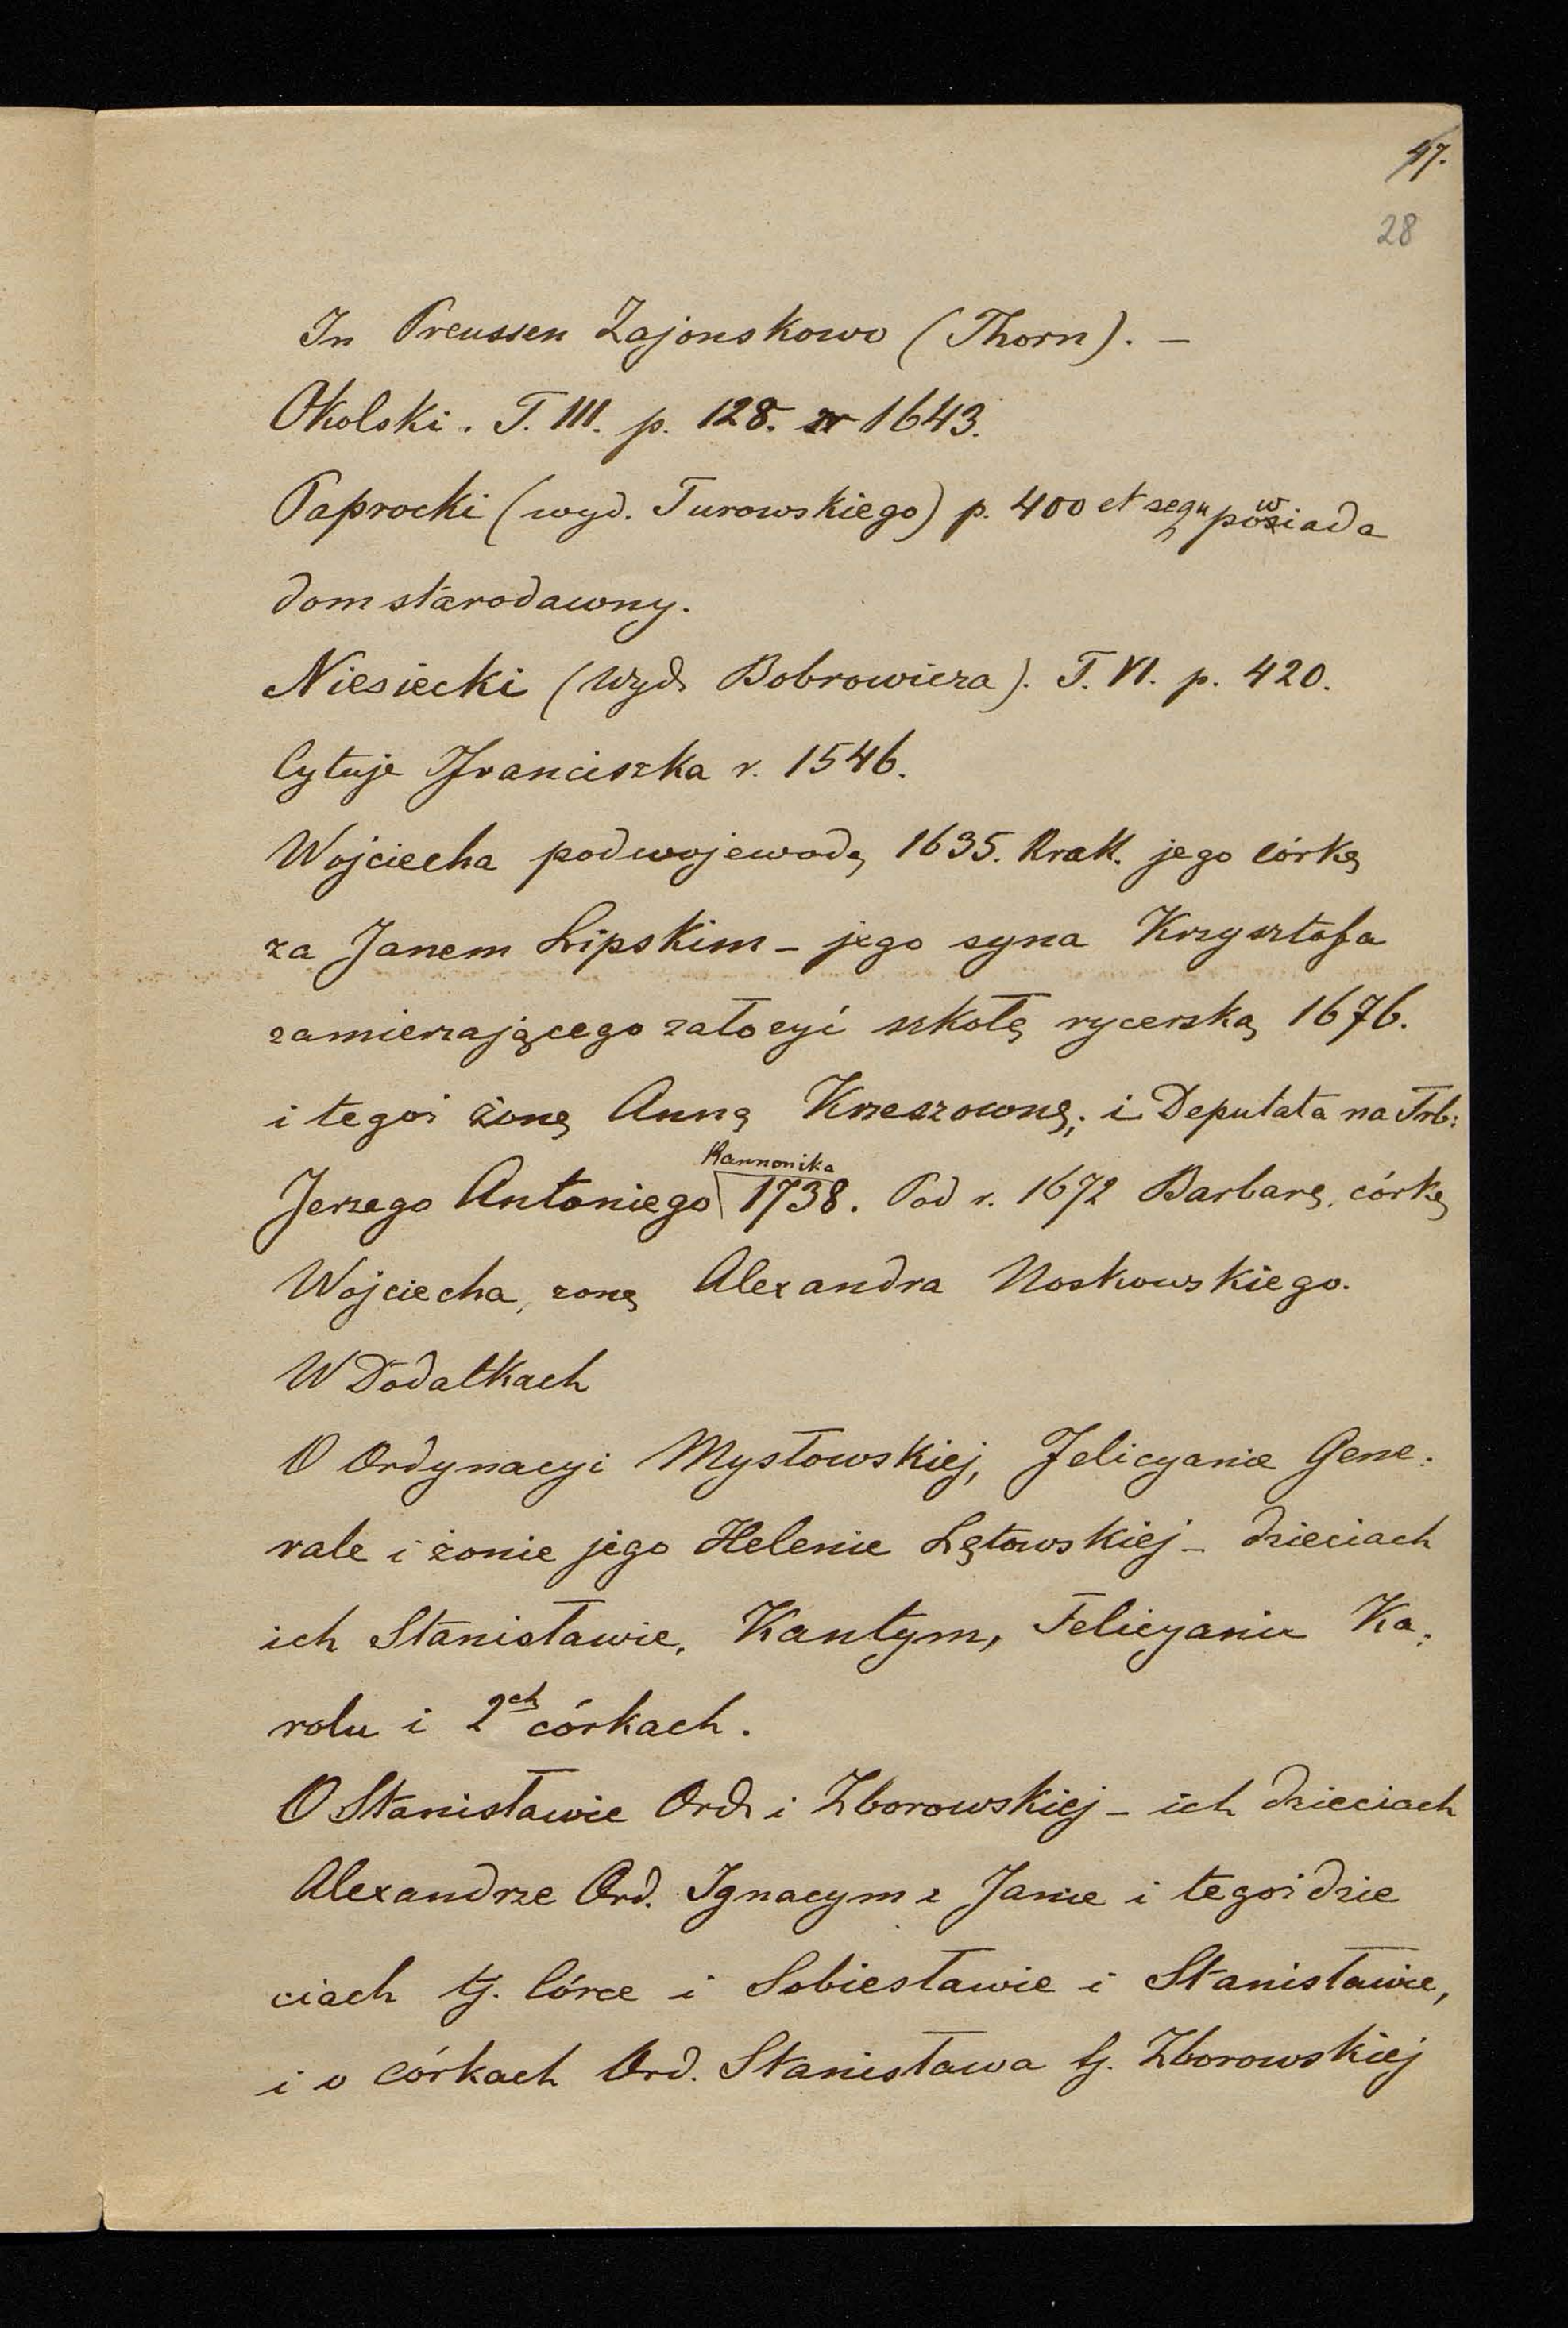 47.
28
In Preussen Zajonskowo (Thorn). –
Okolski. T. III. p. 128. r 1643.
Paprocki (wyd. Turowskiego) p. 400 et sequ powiada
dom starodawny.
Niesiecki (Wyd. Bobrowicza). T. VI. p. 420.
Cytuje Franciszka r. 1546.
Wojciecha podwojewodę 1635. Krak. jego córkę
za Janem Lipskim – jego syna Krzysztofa
zamierzającego założyć szkołę rycerską 1676.
i tegoż żonę Annę Krzeszownę; i Deputata na Trb:
Jerzego Antoniego Kannonika 1738. Pod r. 1672 Barbarę, córkę
Wojciecha, żonę Alexandra Noskowskiego.
W Dodatkach
O Ordynacyi Mysłowskiej, Felicyanie Gene:
rale i żonie jego Helenie Lętowskiej – dzieciach
ich Stanisławie, Kantym, Felicyanie Ka:
rolu i 2ch córkach.
O Stanisławie Ord. i Zborowskiej – ich dzieciach
Alexandrze Ord. Ignacym i Janie i tegoż dzie
ciach tj. Córce i Sobiesławie i Stanisławie,
i o córkach Ord. Stanisława tj. Zborowskiej